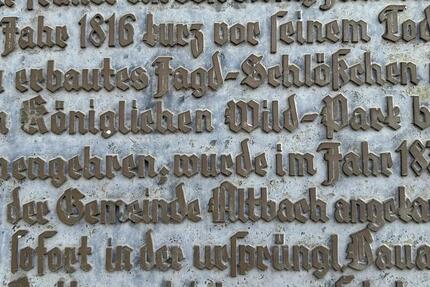 Jahr 1816 kurz vor seinem Tod
erbautes Jagd-Schlößchen
Königlichen Wild-Park b
hengehren, wurde im Jahr 18
der Gemeinde Altbach angeka
sofort in der ursprüngl. Baua